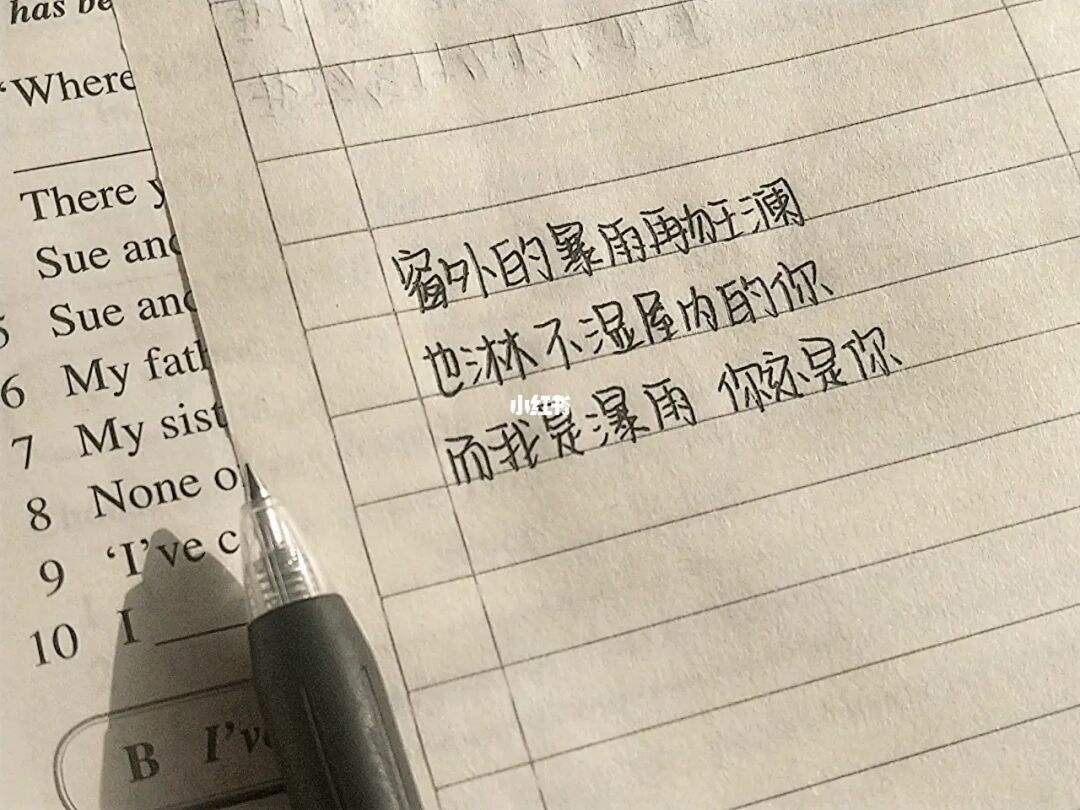 has
‘Where
There
Sue and
5 Sue and
6 My
7 My
8 None
9 ‘I’ve
10 I
B I’ve
窗外的暴雨再狂澜
也淋不湿屋内的你
而我是瀑雨 你还是你
小红书